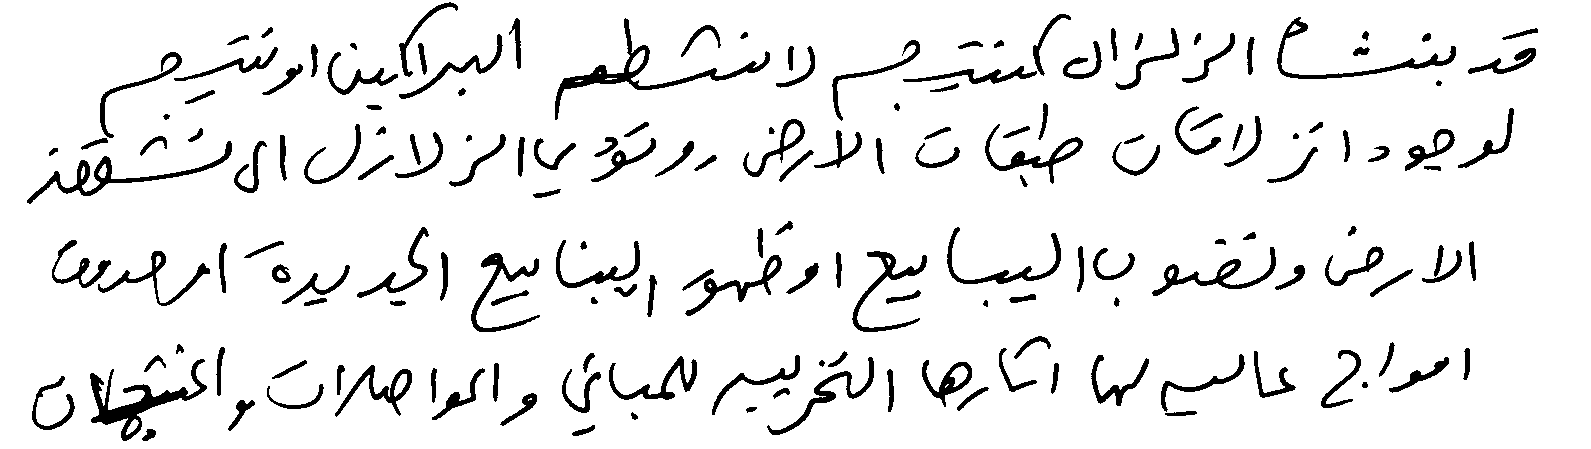 قد ينشأ الزلزال كنتيجه لانشطه البراكين او نتيجه
لوجود انزلاقات طبقات الارض وتؤدي الزلازل الى تشقق
الارض ونضوب الينابيع او ظهور الينابيع الجديدة او حدوث
امواج عاليه لها اثارها التخريبيه للمباني والمواصلات والمنشات